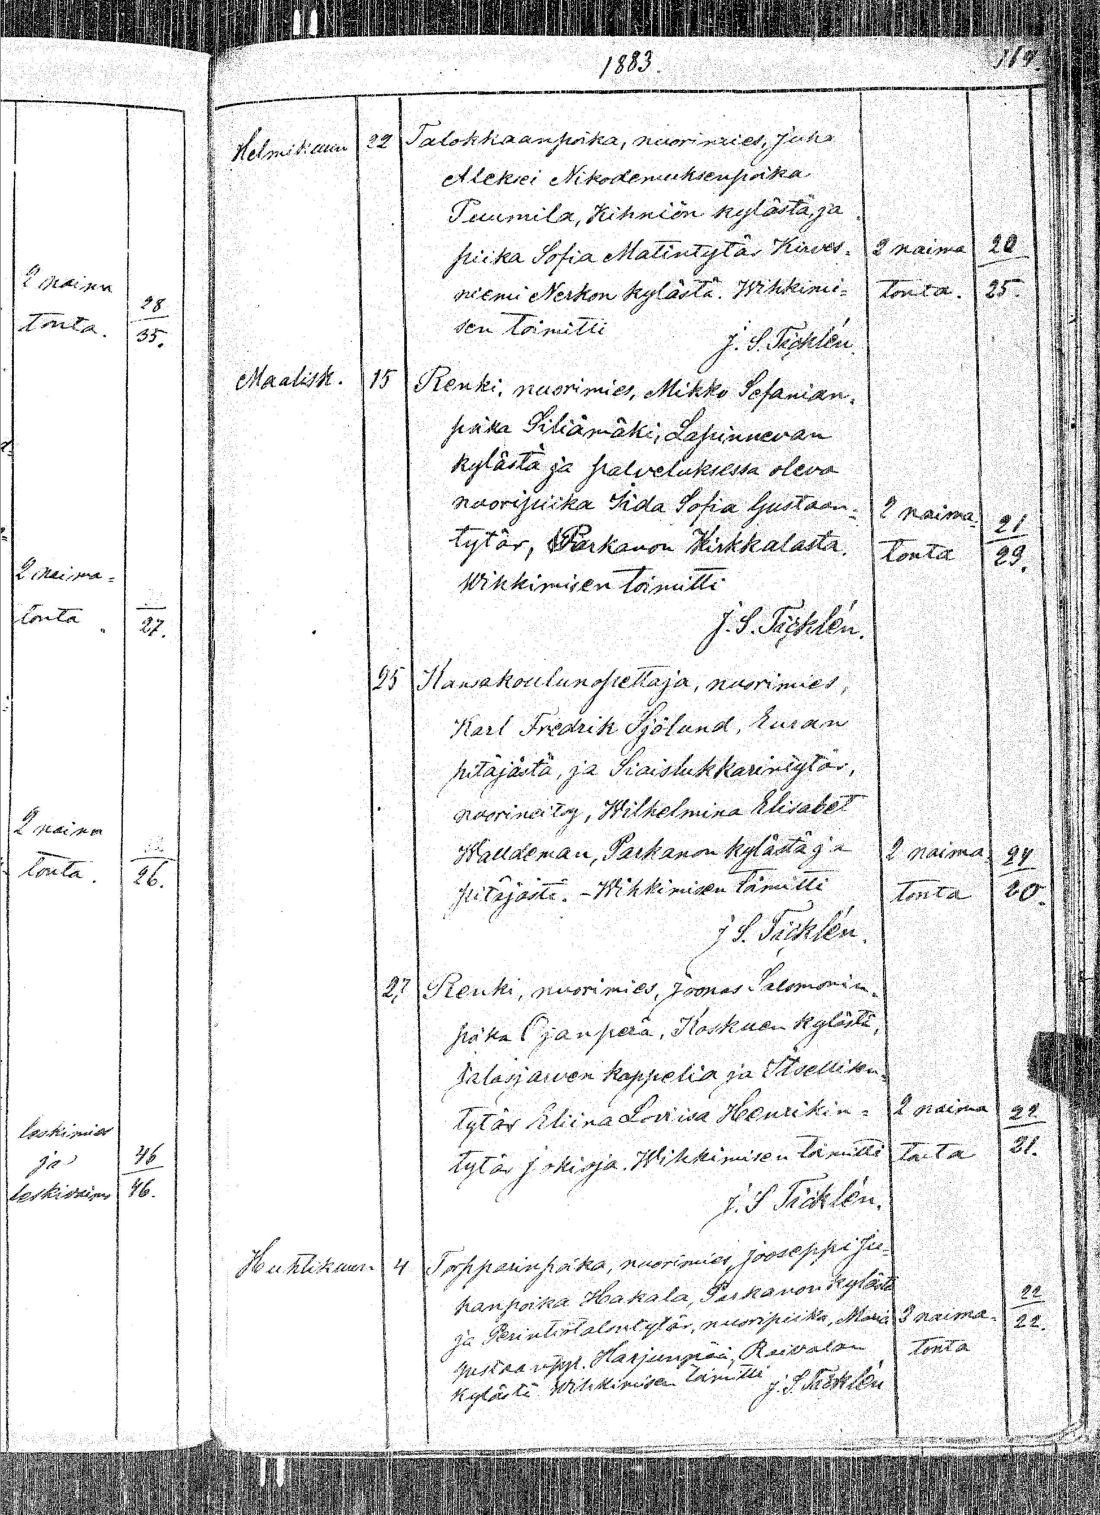 2 naima
28
tonta.
35.
2 naima=
tonta.
27.
2 naima
tonta.
26.
leskimies
ja
46
leskivaimo
46.
1883.
Helmikuun 22 Talokkaanpoika, nuorimies, Juha
Aleksei Nikodemuksenpoika
Tuumila, Kihniön kylästä, ja
piika Sofia Matintytär Kirves= 2 naima 20
niemi Nerkon kylästä. Wihkimi= tonta. 25.
sen toimitti
J. S. Täcklén.
Maalisk. 15 Renki, nuorimies, Mikko Sefanian=
poika Siliämäki, Lapinnevan
kylästä ja palveluksessa oleva
nuoripiika Iida Sofia Gustaan= 2 naima= 21
tytär, Parkanon Kirkkalasta. tonta 29.
Wihkimisen toimitti
J. S. Täcklén.
25 Kansakoulunopettaja, nuorimies,
Karl Fredrik Sjölund, Euran
pitäjästä, ja Siaislukkarintytär,
nuorineitsy, Wilhelmina Elisabet
Walldeman, Parkanon kylästä ja 2 naima= 24
pitäjästä. - Wihkimisen toimitti tonta 20.
J. S. Täcklén.
27 Renki, nuorimies, Joonas Salomonin=
poika Ojanperä, Koskuen kylästä,
Jalasjärven kappelia ja Itsellisen=
tytär Eliina Loviisa Henrikin= 2 naima 22
tytär Jokioja. Wihkimisen toimitti tonta 21.
J. S. Täcklén.
Huhtikuun 4 Torpparinpoika, nuorimies, Jooseppi Ju=
hanpoika Hakala, Parkanon kylästä 22
ja Perintötalontytär, nuoripiika, Maria 2 naima= 22.
Gustaantyt. Harjunpää, Raivalan tonta
kylästä. Wihkimisen toimitti J. S. Täcklén